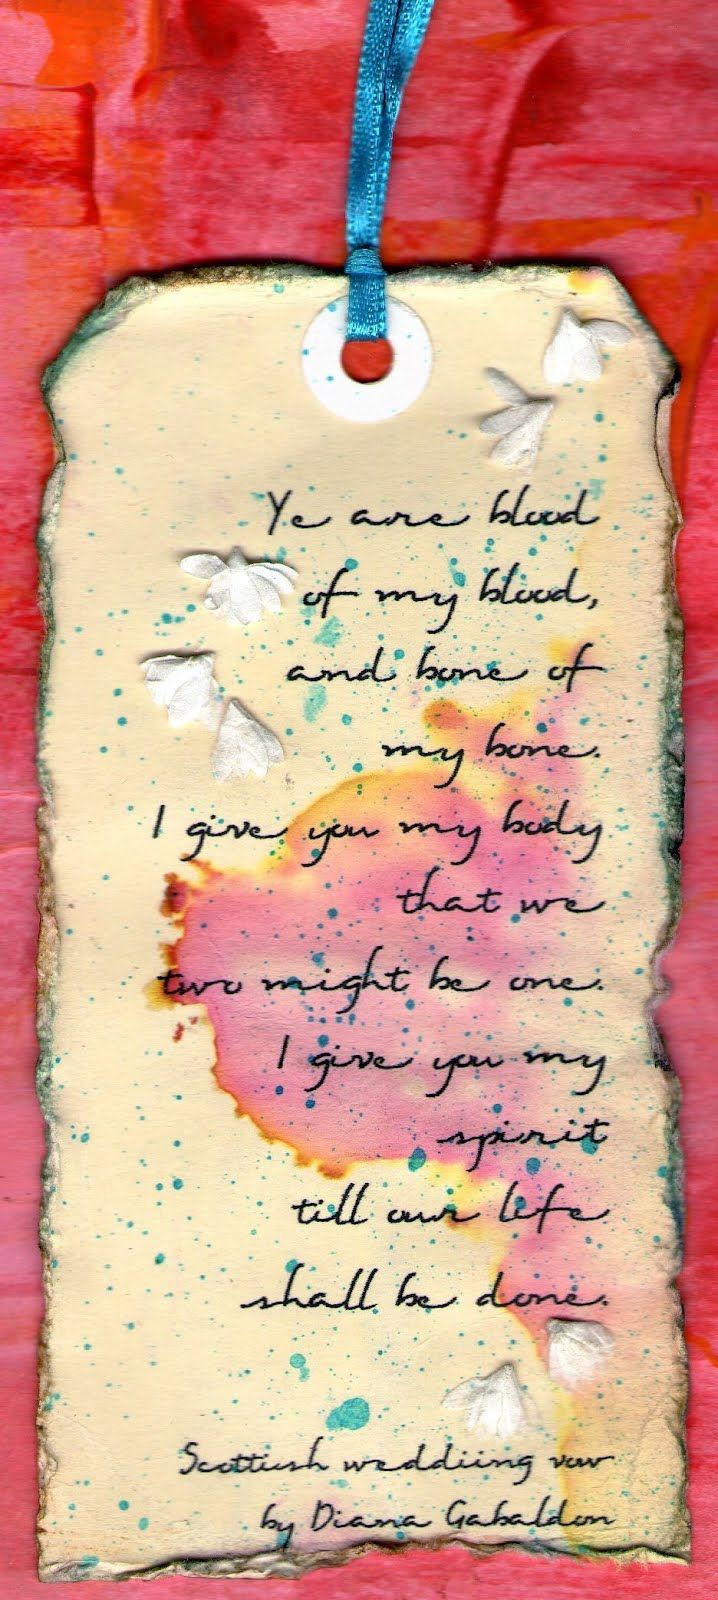 Ye are blood
of my blood,
and bone of
my bone.
I give you my body
that we
two might be one.
I give you my
spirit
till our life
shall be done.
Scottish weddiing vow
by Diana Gabaldon